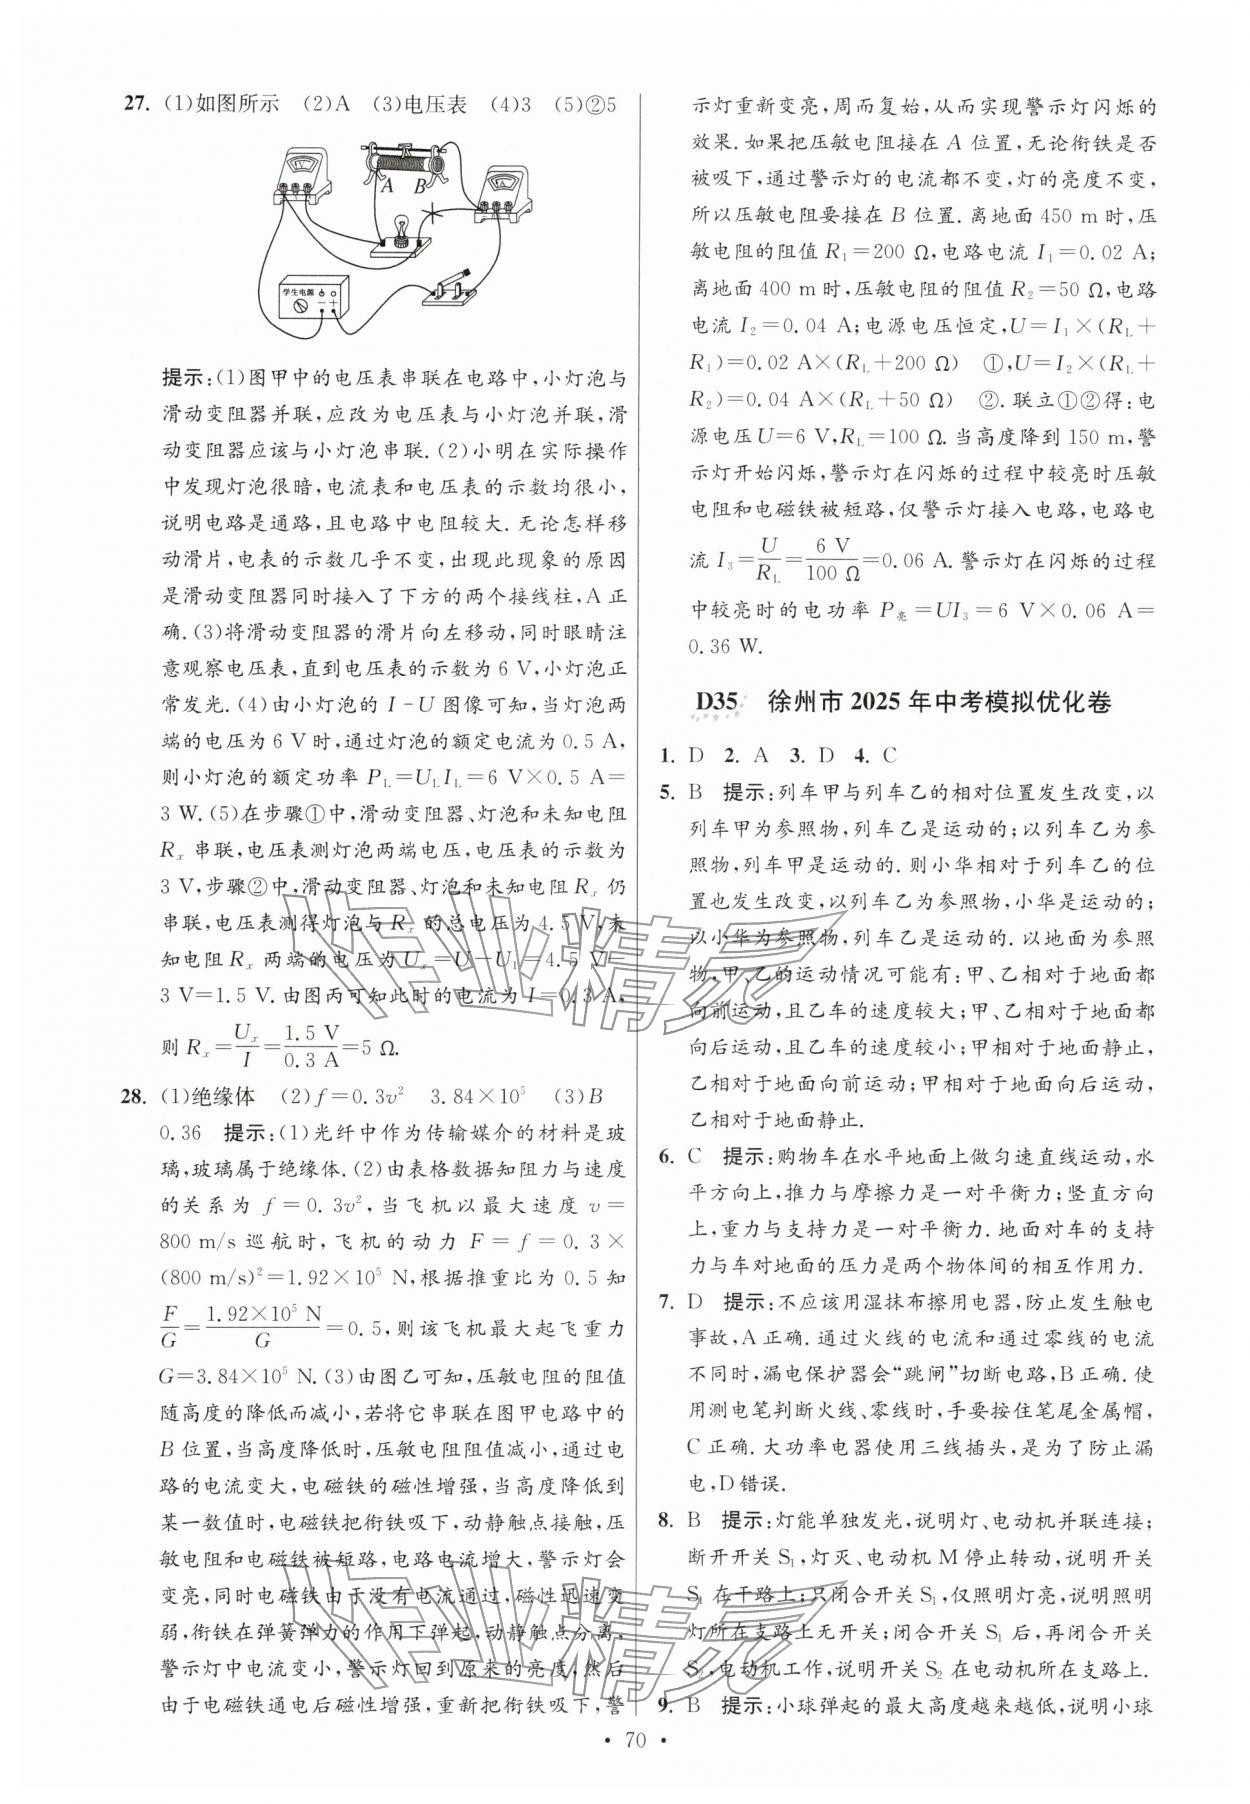 27. (1)如图所示 (2)A (3)电压表 (4)3 (5)②5
A B
学生电源
提示:(1)图甲中的电压表串联在电路中,小灯泡与
滑动变阻器并联,应改为电压表与小灯泡并联,滑
动变阻器应该与小灯泡串联.(2)小明在实际操作
中发现灯泡很暗,电流表和电压表的示数均很小,
说明电路是通路,且电路中电阻较大.无论怎样移
动滑片,电表的示数几乎不变,出现此现象的原因
是滑动变阻器同时接入了下方的两个接线柱,A正
确.(3)将滑动变阻器的滑片向左移动,同时眼睛注
意观察电压表,直到电压表的示数为6 V,小灯泡正
常发光.(4)由小灯泡的I-U图像可知,当灯泡两
端的电压为6 V时,通过灯泡的额定电流为0.5 A,
则小灯泡的额定功率P_L=U_L I_L=6 V×0.5 A=
3 W.(5)在步骤①中,滑动变阻器、灯泡和未知电阻
R_x串联,电压表测灯泡两端电压,电压表的示数为
3 V,步骤②中,滑动变阻器、灯泡和未知电阻R_x仍
串联,电压表测得灯泡与R_x的总电压为4.5 V,未
知电阻R_x两端的电压为U_x=U-U_L=4.5 V-
3 V=1.5 V.由图丙可知此时的电流为I=0.3 A,
则R_x=U_x/I=1.5 V/0.3 A=5 Ω.
28. (1)绝缘体 (2)f=0.3v² 3.84×10⁵ (3)B
0.36 提示:(1)光纤中作为传输媒介的材料是玻
璃,玻璃属于绝缘体.(2)由表格数据知阻力与速度
的关系为f=0.3v²,当飞机以最大速度v=
800 m/s巡航时,飞机的动力F=f=0.3×
(800 m/s)²=1.92×10⁵ N,根据推重比为0.5知
F/G=1.92×10⁵ N/G=0.5,则该飞机最大起飞重力
G=3.84×10⁵ N.(3)由图乙可知,压敏电阻的阻值
随高度的降低而减小,若将它串联在图甲电路中的
B位置,当高度降低时,压敏电阻阻值减小,通过电
路的电流变大,电磁铁的磁性增强,当高度降低到
某一数值时,电磁铁把衔铁吸下,动静触点接触,压
敏电阻和电磁铁被短路,电路电流增大,警示灯会
变亮,同时电磁铁由于没有电流通过,磁性迅速变
弱,衔铁在弹簧弹力的作用下弹起,动静触点分离,
警示灯中电流变小,警示灯回到原来的亮度,然后
由于电磁铁通电后磁性增强,重新把衔铁吸下,警
示灯重新变亮,周而复始,从而实现警示灯闪烁的
效果.如果把压敏电阻接在A位置,无论衔铁是否
被吸下,通过警示灯的电流都不变,灯的亮度不变,
所以压敏电阻要接在B位置.离地面450 m时,压
敏电阻的阻值R₁=200 Ω,电路电流I₁=0.02 A;
离地面400 m时,压敏电阻的阻值R₂=50 Ω,电路
电流I₂=0.04 A;电源电压恒定,U=I₁×(R_L+
R₁)=0.02 A×(R_L+200 Ω) ①,U=I₂×(R_L+
R₂)=0.04 A×(R_L+50 Ω) ②.联立①②得:电
源电压U=6 V,R_L=100 Ω.当高度降到150 m,警
示灯开始闪烁,警示灯在闪烁的过程中较亮时压敏
电阻和电磁铁被短路,仅警示灯接入电路,电路电
流I₃=U/R_L=6 V/100 Ω=0.06 A.警示灯在闪烁的过程
中较亮时的电功率P亮=UI₃=6 V×0.06 A=
0.36 W.
D35 徐州市2025年中考模拟优化卷
1. D 2. A 3. D 4. C
5. B 提示:列车甲与列车乙的相对位置发生改变,以
列车甲为参照物,列车乙是运动的;以列车乙为参
照物,列车甲是运动的.则小华相对于列车乙的位
置也发生改变,以列车乙为参照物,小华是运动的;
以小华为参照物,列车乙是运动的.以地面为参照
物,甲、乙的运动情况可能有:甲、乙相对于地面都
向前运动,且乙车的速度较大;甲、乙相对于地面都
向后运动,且乙车的速度较小;甲相对于地面静止,
乙相对于地面向前运动;甲相对于地面向后运动,
乙相对于地面静止.
6. C 提示:购物车在水平地面上做匀速直线运动,水
平方向上,推力与摩擦力是一对平衡力;竖直方向
上,重力与支持力是一对平衡力.地面对车的支持
力与车对地面的压力是两个物体间的相互作用力.
7. D 提示:不应该用湿抹布擦用电器,防止发生触电
事故,A正确.通过火线的电流和通过零线的电流
不同时,漏电保护器会“跳闸”切断电路,B正确.使
用测电笔判断火线、零线时,手要按住笔尾金属帽,
C正确.大功率电器使用三线插头,是为了防止漏
电,D错误.
8. B 提示:灯能单独发光,说明灯、电动机并联连接;
断开开关S₁,灯灭、电动机M停止转动,说明开关
S₁在干路上;只闭合开关S₁,仅照明灯亮,说明照明
灯所在支路上无开关;闭合开关S₁后,再闭合开关
S₂,电动机工作,说明开关S₂在电动机所在支路上.
9. B 提示:小球弹起的最大高度越来越低,说明小球
作业精灵
作业精灵
• 70 •